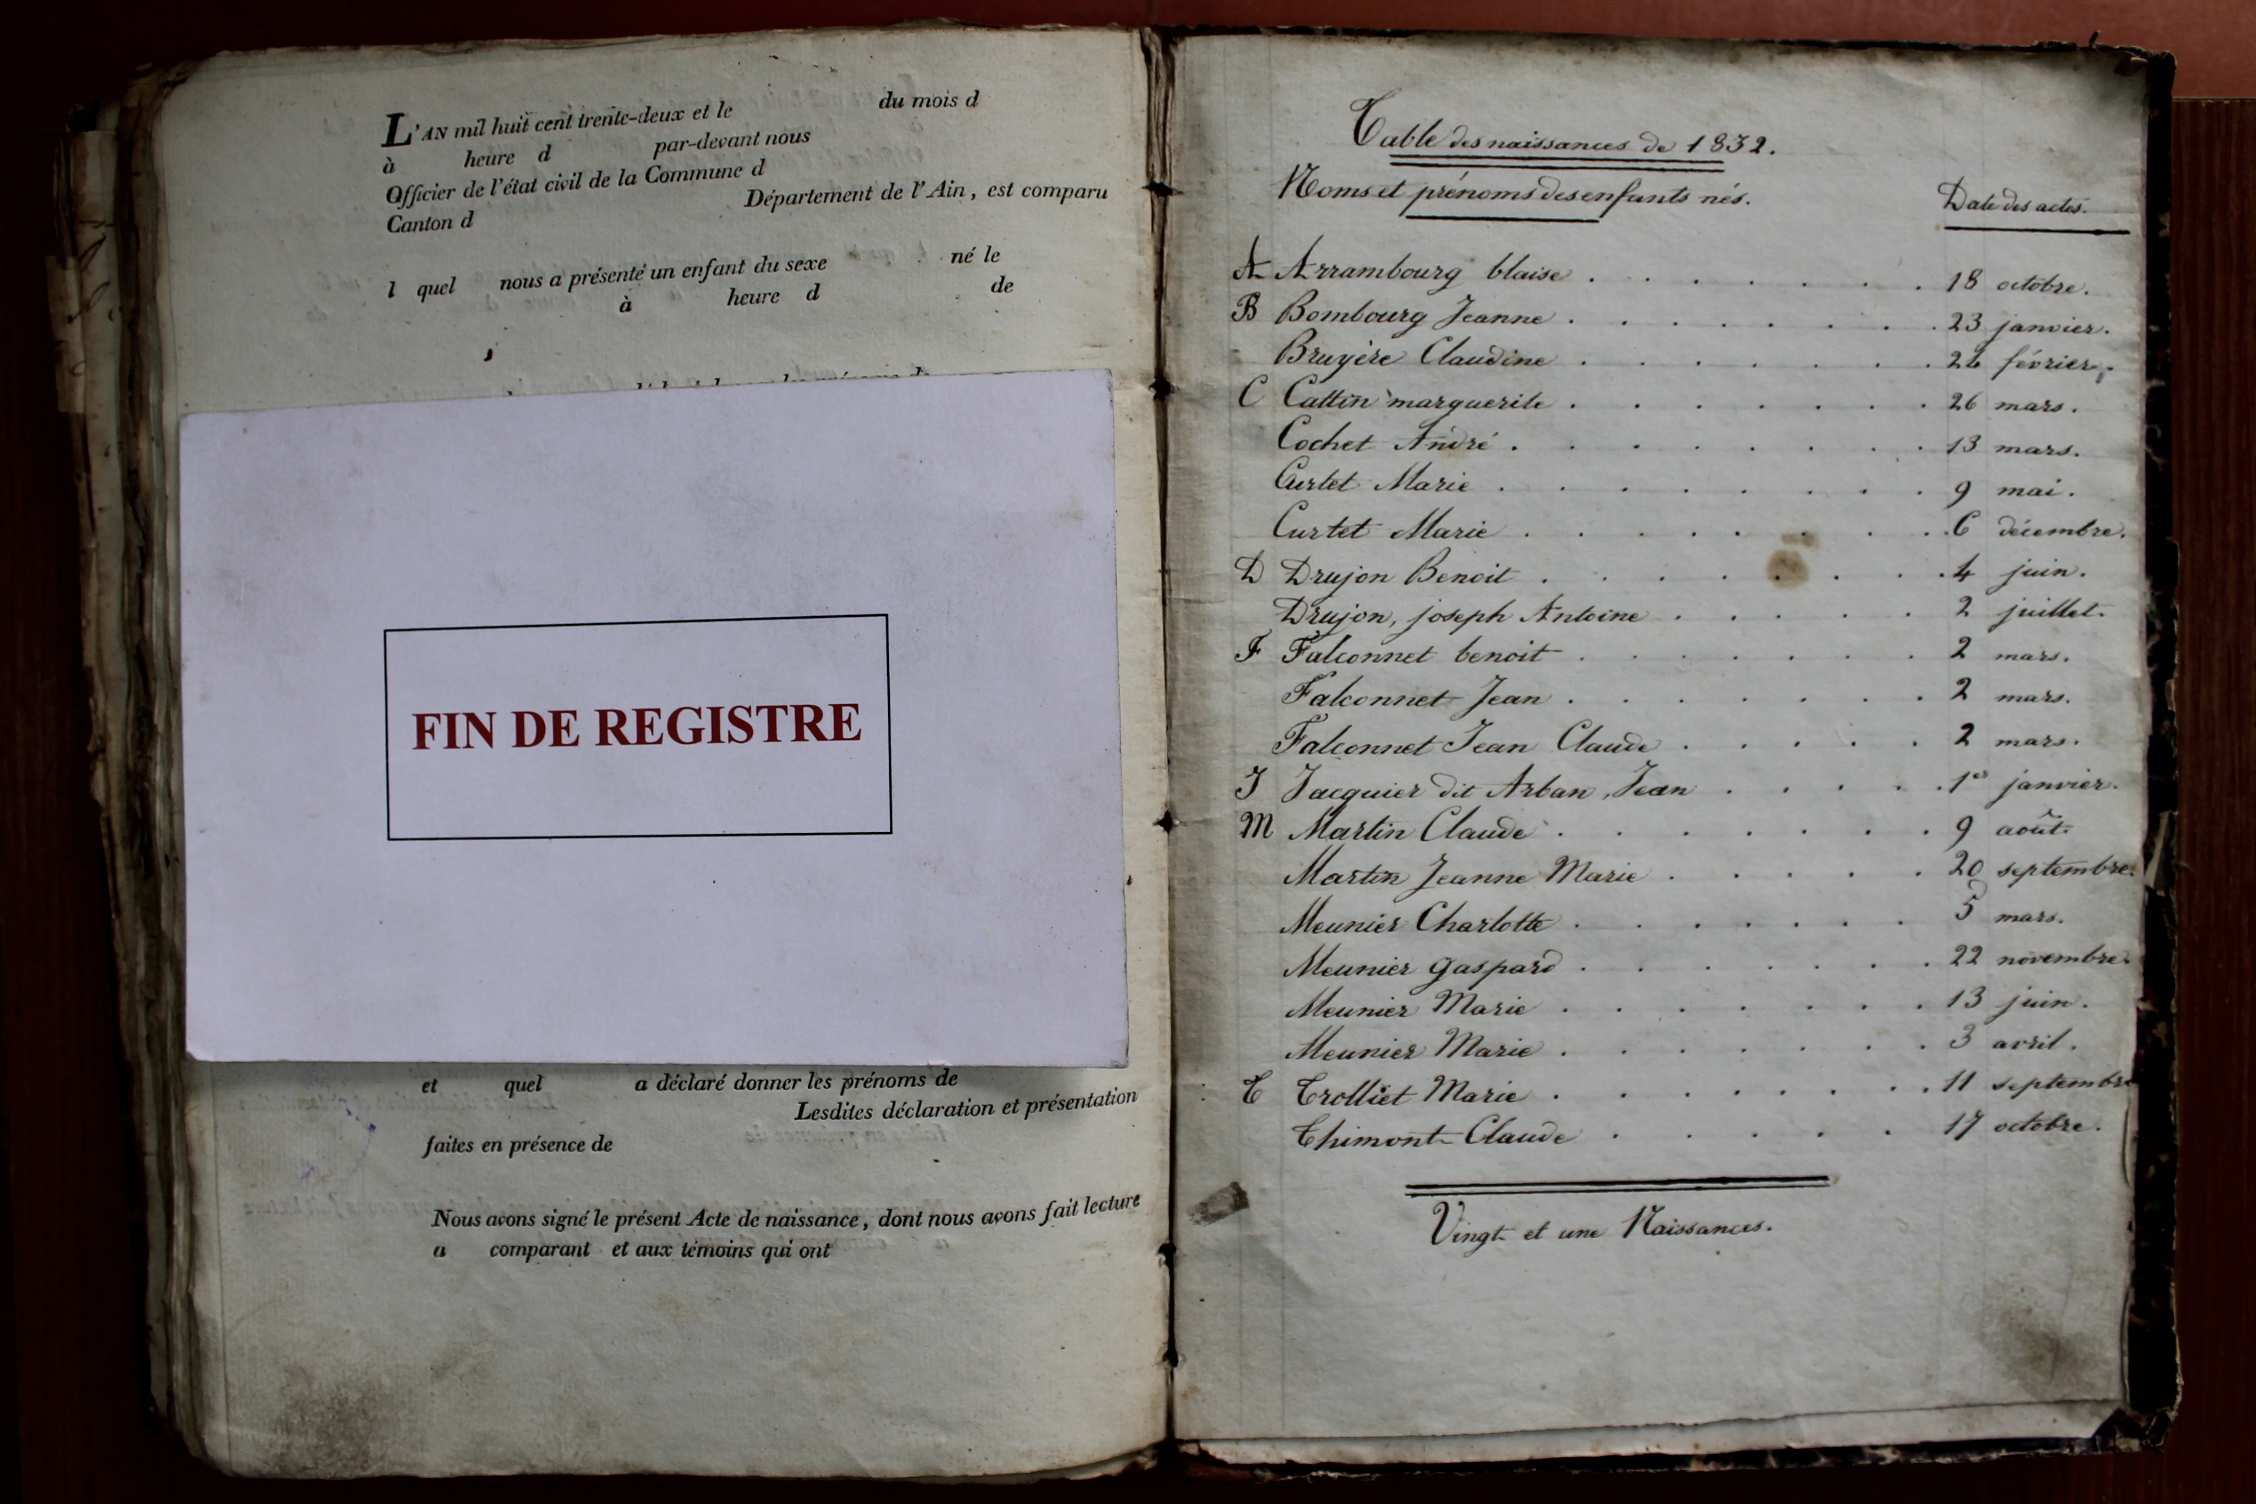 L'AN mil huit cent trente-deux et le du mois d
à heure d par-devant nous
Officier de l'état civil de la Commune d
Canton d Département de l'Ain, est comparu
l quel nous a présenté un enfant du sexe né le
à heure d de
FIN DE REGISTRE
et quel a déclaré donner les prénoms de
Lesdites déclaration et présentation
faites en présence de
Nous avons signé le présent Acte de naissance, dont nous avons fait lecture
a comparant et aux témoins qui ont
Table des naissances de 1832.
Noms et prénoms des enfants nés. Date des actes.
A Arrambourg blaise . . . . . . . 18 octobre.
B Bombourg Jeanne . . . . . . . 23 janvier.
Bruyère Claudine . . . . . . . 26 février.
C Cattin marguerite . . . . . . . 26 mars.
Cochet André . . . . . . . . 13 mars.
Curtet Marie . . . . . . . . 9 mai.
Curtet Marie . . . . . . . . 6 décembre.
D Drujon Benoit . . . . . . . 4 juin.
Drujon, joseph Antoine . . . . . 2 juillet.
F Falconnet benoit . . . . . . . 2 mars.
Falconnet Jean . . . . . . . 2 mars.
Falconnet Jean Claude . . . . . 2 mars.
J Jacquier dit Arban, Jean . . . . . 1er janvier.
M Martin Claude . . . . . . . 9 août.
Martin Jeanne Marie . . . . . 20 septembre.
Meunier Charlotte . . . . . . 5 mars.
Meunier gaspard . . . . . . . 22 novembre.
Meunier Marie . . . . . . . 13 juin.
Meunier Marie . . . . . . . 3 avril.
T Trolliet Marie . . . . . . . 11 septembre
Thimont Claude . . . . . 17 octobre.
Vingt et une Naissances.